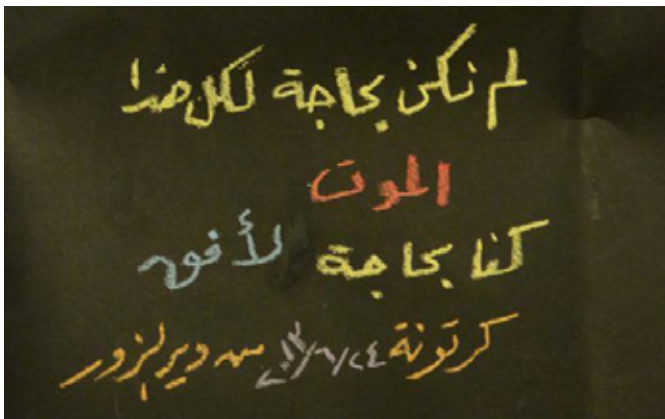 لم نكن بحاجة لكل هذا
الموت
كنا بحاجة لأفق
كرتونة ٢٠١٣/٦/٢٤ من ديرلزور